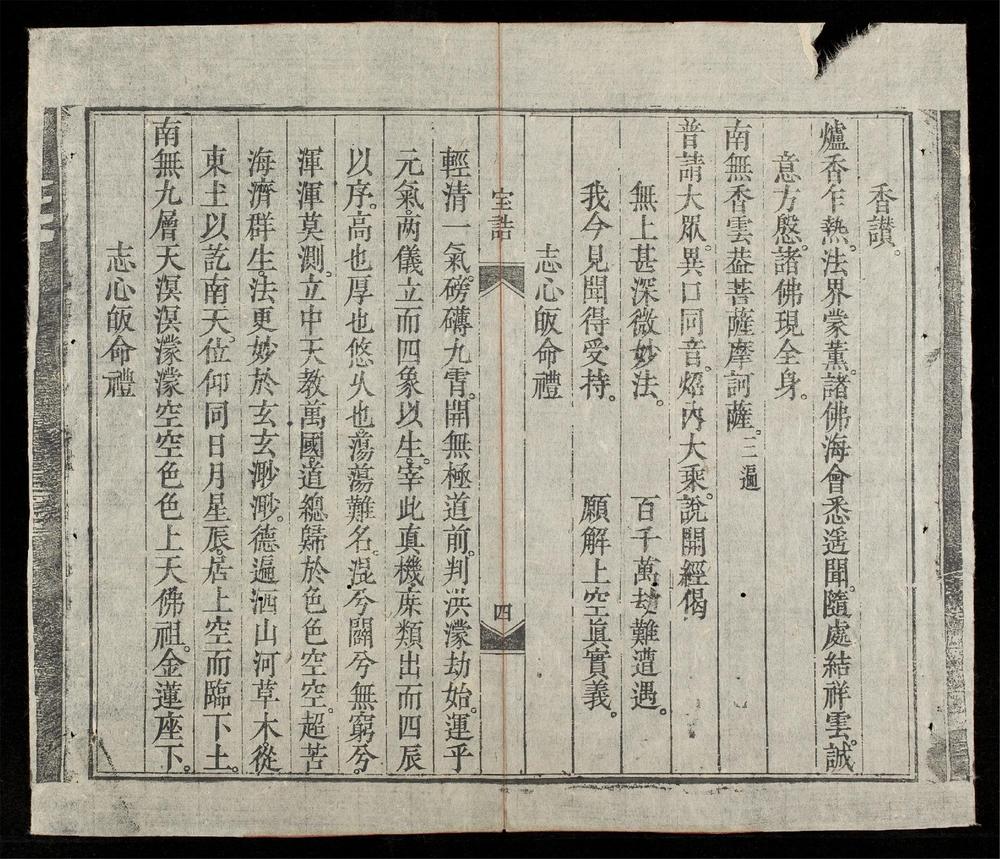 香讃。
爐香乍熱。法界蒙薰。諸佛海會悉遥聞。隨處結祥雲。誠
意方慇。諸佛現全身。
南無香雲葢菩薩摩訶薩。三遍
普請大眾。異口同音。爐内大乘。說開經偈
無上甚深微妙法。 百千萬劫難遭遇。
我今見聞得受持。 願解上空眞實義。
志心皈命禮
宝誥 四
輕清一氣。磅礴九霄。開無極道前。判洪濛劫始。運乎
元氣。两儀立而四象以生。宰此真機。庶類出而四辰
以序。高也厚也悠久也。蕩蕩難名。混兮闢兮無窮兮。
渾渾莫測。立中天教萬國。道總歸於色色空空。超苦
海濟群生。法更妙於玄玄渺渺。德遍洒山河草木。從
東土以訖南天。位仰同日月星辰。居上空而臨下土。
南無九層天溟溟濛濛空空色色上天佛祖。金蓮座下。
志心皈命禮